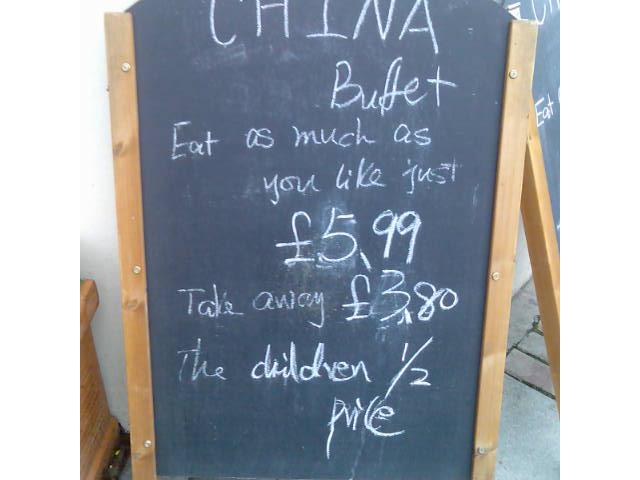 CHINA
Buffet
Eat as much as
you like just
£5.99
Take away £3.80
The children 1/2
price
Eat